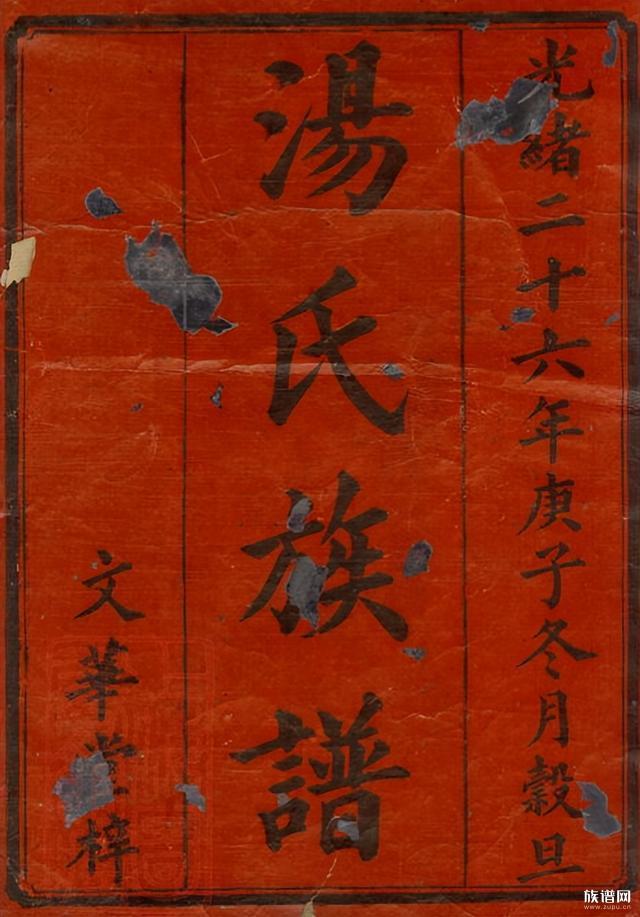 光緒二十六年庚子冬月穀旦
湯氏族譜
文華堂梓
族谱网
www.zupu.cn